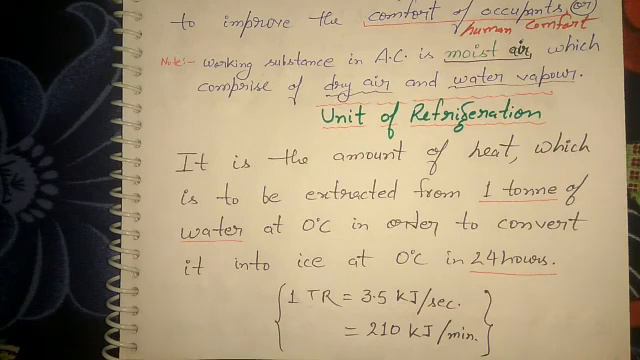 to improve the comfort of occupants (or)
human comfort
Note:- working substance in A.C. is moist air, which
comprise of dry air and water vapour.
Unit of Refrigeration
It is the amount of heat, which
is to be extracted from 1 tonne of
water at 0°C in order to convert
it into ice at 0°C in 24 hours.
1 TR = 3.5 KJ/sec.
= 210 KJ/min.